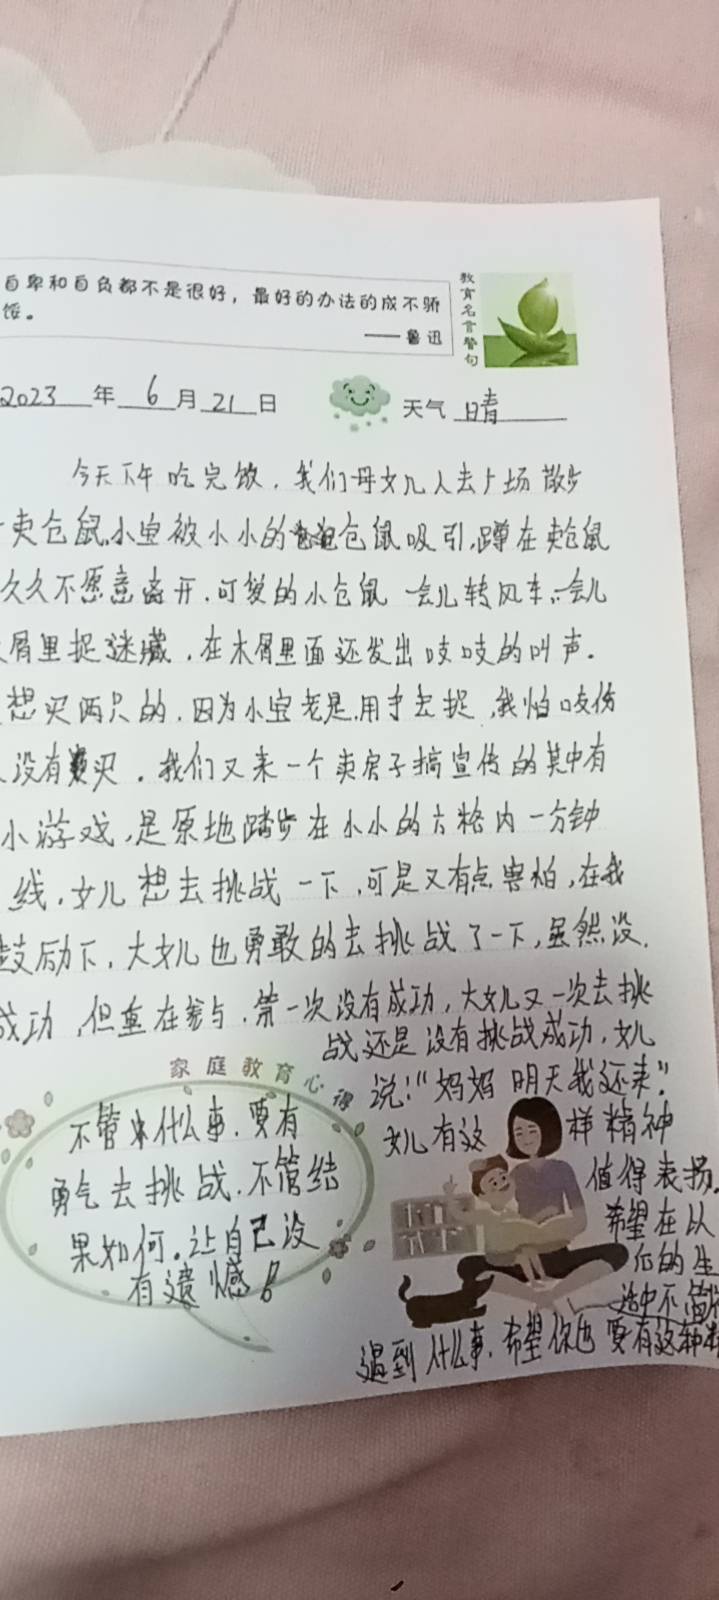 自卑和自负都不是很好，最好的办法的成不骄
馁。
——鲁迅
教育名言警句
2023年6月21日
天气 晴
今天下午吃完饭，我们母女几人去广场散步
卖仓鼠,小宝被小小的仓鼠吸引,蹲在卖仓鼠
久久不愿意离开.可爱的小仓鼠一会儿转风车,一会儿
屑里捉迷藏,在木屑里面还发出吱吱的叫声.
想买两只的.因为小宝老是用手去捉,我怕咬伤
没有买.我们又来一个卖房子搞宣传的其中有
小游戏,是原地踏步在小小的方格内一分钟
线,女儿想去挑战一下,可是又有点害怕,在我
鼓励下,大女儿也勇敢的去挑战了一下,虽然没.
成功,但重在参与.第一次没有成功,大女儿又一次去挑
战还是没有挑战成功,女儿
说:"妈妈明天我还来."
女儿有这样精神
值得表扬.
希望在以
后的生
活中不管
遇到什么事.希望你也要有这种精
家庭教育心得
不管什么事.要有
勇气去挑战.不管结
果如何。让自己没
有遗憾!